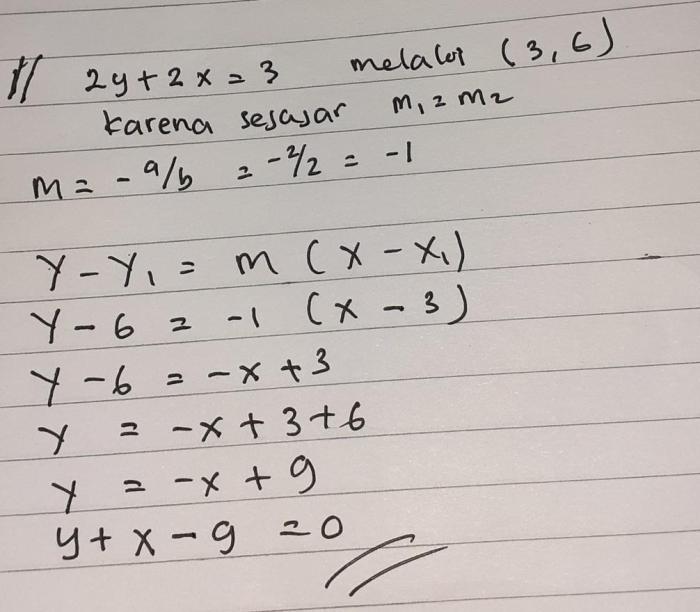 // 2y + 2x = 3 melalui (3,6)
karena sejajar m₁ = m₂
m = - a/b = -2/2 = -1
Y - Y₁ = m (X - X₁)
Y - 6 = -1 (X - 3)
Y - 6 = -X + 3
Y = -X + 3 + 6
Y = -X + 9
y + x - 9 = 0